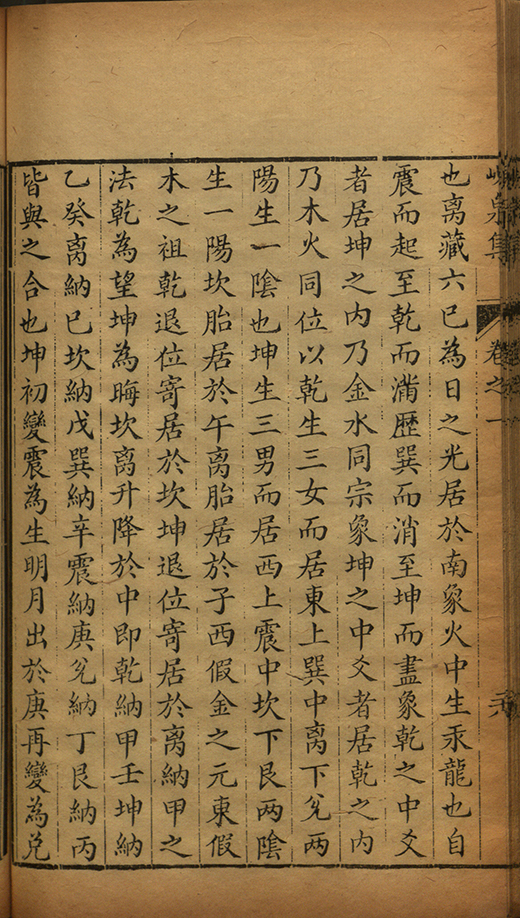 泉集
卷之一
也离藏六巳為日之光居於南象火中生汞龍也自
震而起至乾而滿歷巽而消至坤而盡象乾之中爻
者居坤之内乃金水同宗象坤之中爻者居乾之内
乃木火同位以乾生三女而居東上巽中离下兌两
陽生一陰也坤生三男而居西上震中坎下艮两陰
生一陽坎胎居於午离胎居於子西假金之元東假
木之祖乾退位寄居於坎坤退位寄居於离納甲之
法乾為望坤為晦坎离升降於中即乾納甲壬坤納
乙癸离納巳坎納戊巽納辛震納庚兌納丁艮納丙
皆與之合也坤初變震為生明月出於庚再變為兌